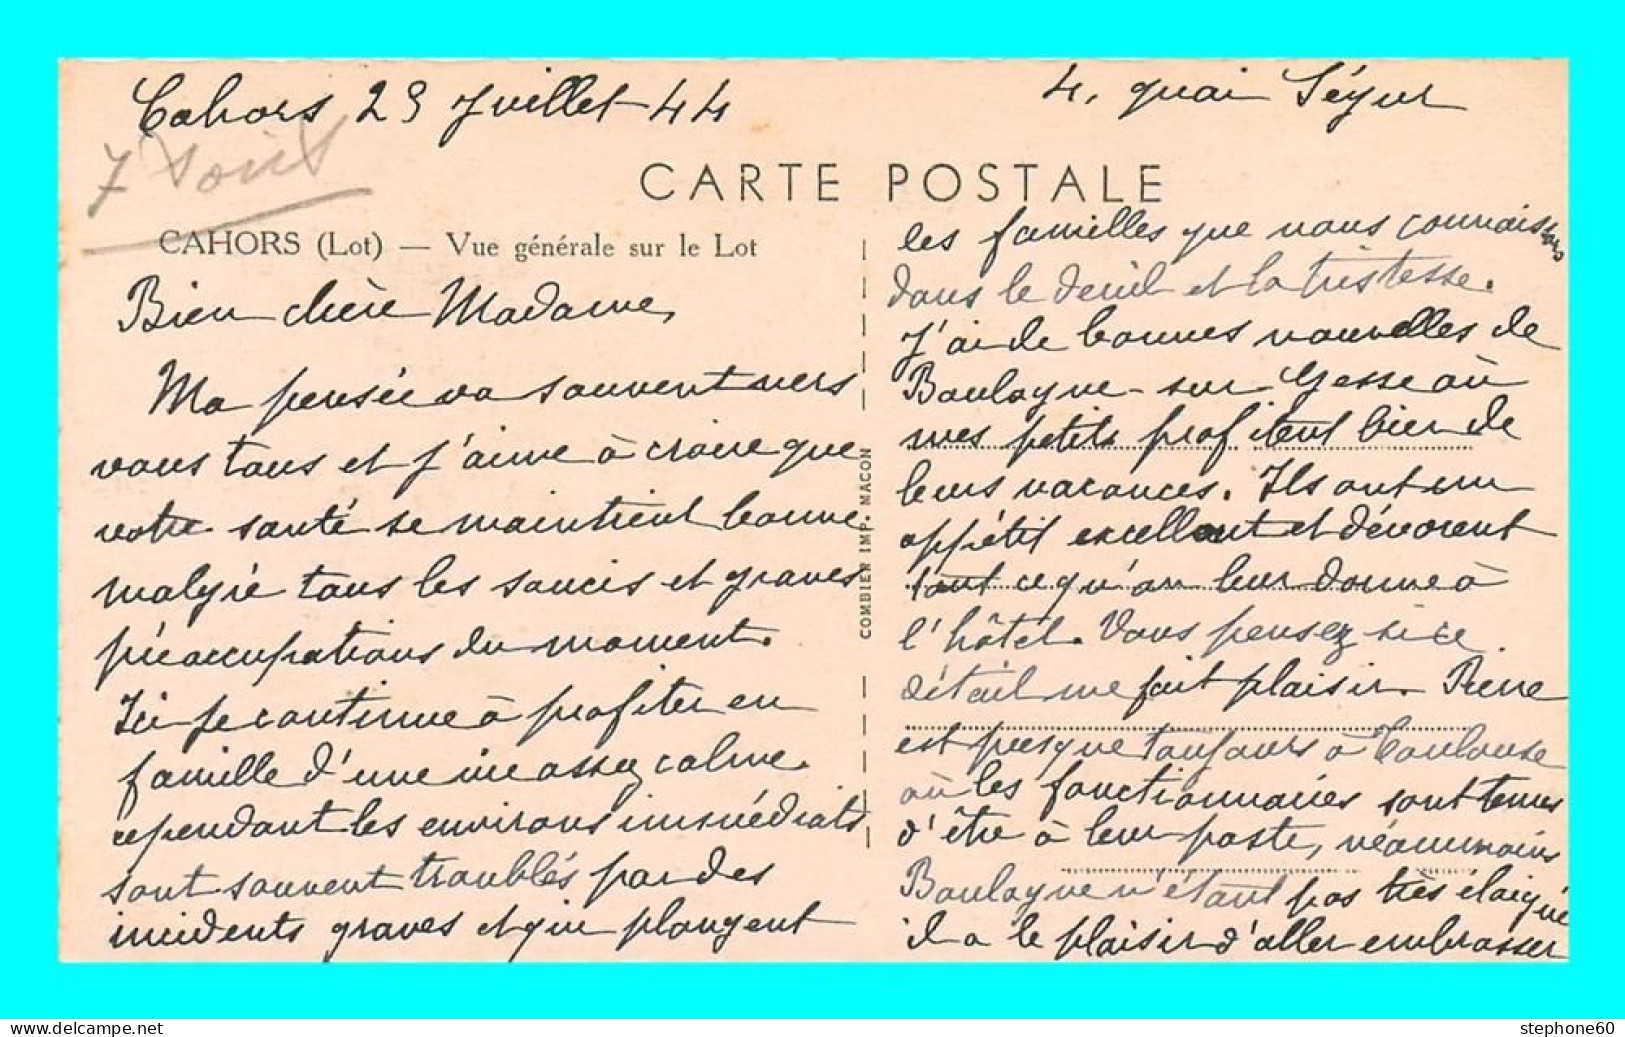 Cahors 29 Juillet 44
4, quai Ségur
CARTE POSTALE
CAHORS (Lot) — Vue générale sur le Lot
Bien chère Madame,
Ma pensée va souvent vers
vous tous et j'aime à croire que
votre santé se maintient bonne
malgré tous les soucis et graves
préoccupations du moment.
Ici je continue à profiter en
famille d'une vie assez calme.
cependant les environs immédiats
sont souvent troublés par des
incidents graves et qui plongent
COMBIER IMP. MACON
les familles que nous connaissons
dans le deuil et la tristesse.
J'ai de bonnes nouvelles de
Boulogne-sur-Gesse où
mes petits profitent bien de
leurs vacances. Ils ont un
appétit excellent et dévorent
tout ce qu'on leur donne à
l'hôtel. Vous pensez si ce
détail me fait plaisir. Pierre
est presque toujours à Toulouse
où les fonctionnaires sont tenus
d'être à leur poste, néanmoins
Boulogne n'étant pas très éloigné
il a le plaisir d'aller embrasser
www.delcampe.net
stephone60